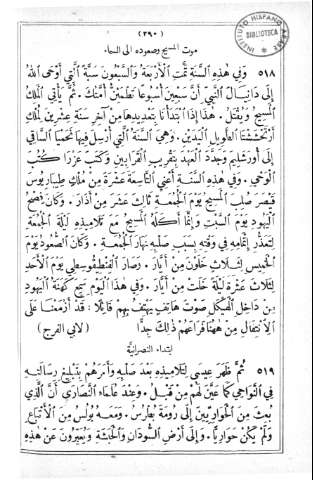 (٢٩٠)
INSTITUTO HISPANO ARABE
BIBLIOTECA
موت المسيح وصعوده الى السماء
٥١٨ وَفِي هٰذِهِ ٱلسَّنَةِ تَمَّتِ ٱلْأَرْبَعَةُ وَٱلسَّبْعُونَ سَنَةً ٱلَّتِي أَوْحَى ٱللهُ
إِلَى دَانِيَالَ ٱلنَّبِيِّ أَنَّ سَبْعِينَ أُسْبُوعًا تَطْمَئِنُّ أُمَّتُكَ . ثُمَّ يَأْتِي ٱلْمَلِكُ
ٱلْمَسِيحُ وَيُقْتَلُ . هٰذَا إِذَا ٱبْتَدَأْنَا بِتَعْدِيدِهَا مِنْ آخِرِ سَنَةِ عِشْرِينَ لِمُلْكِ
أَرْتَحْشَشْتَا ٱلطَّوِيلِ ٱلْيَدَيْنِ . وَهِيَ ٱلسَّنَةُ ٱلَّتِي أُرْسِلَ فِيهَا نَحَمْيَا ٱلسَّاقِي
إِلَى أُورَشَلِيمَ وَجَدَّدَ ٱلْعَهْدَ بِتَقْرِيبِ ٱلْقَرَابِينِ وَكَتَبَ عَزْرَا كُتُبَ
ٱلْوَحْيِ . وَفِي هٰذِهِ ٱلسَّنَةِ أَعْنِي ٱلتَّاسِعَةَ عَشْرَةَ مِنْ مُلْكِ طِيبَارِيُوسَ
قَيْصَرَ صُلِبَ ٱلْمَسِيحُ يَوْمَ ٱلْجُمُعَةِ ثَالِثَ عَشَرَ مِنْ آذَارَ . وَكَانَ فِصْحُ
ٱلْيَهُودِ يَوْمَ ٱلسَّبْتِ وَإِنَّمَا أَكَلَهُ ٱلْمَسِيحُ مَعَ تَلَامِيذِهِ لَيْلَةَ ٱلْجُمُعَةِ
لِتَعَذُّرِ إِتْمَامِهِ فِي وَقْتِهِ بِسَبَبِ صَلْبِهِ نَهَارَ ٱلْجُمُعَةِ . وَكَانَ ٱلصُّعُودُ يَوْمَ
ٱلْخَمِيسِ لِثَلَاثٍ خَلَوْنَ مِنْ أَيَّارَ . وَصَارَ ٱلْفَنْطِقُوسْطِي يَوْمَ ٱلْأَحَدِ
لِثَلَاثَ عَشْرَةَ لَيْلَةً خَلَتْ مِنْ أَيَّارَ . وَفِي هٰذَا ٱلْيَوْمِ سَمِعَ كَهَنَةُ ٱلْيَهُودِ
مِنْ دَاخِلِ ٱلْهَيْكَلِ صَوْتَ هَاتِفٍ يَهْتِفُ بِهِمْ قَائِلًا : قَدْ أَزْمَعْنَا عَلَى
ٱلِٱنْتِقَالِ مِنْ هٰهُنَا فَرَاعَهُمْ ذٰلِكَ جِدًّا (لابي الفرج)
ابتداء النصرانية
٥١٩ ثُمَّ ظَهَرَ عِيسَى لِتَلَامِيذِهِ بَعْدَ صَلْبِهِ وَأَمَرَهُمْ بِتَبْلِيغِ رِسَالَتِهِ
فِي ٱلنَّوَاحِي كَمَا عَيَّنَ لَهُمْ مِنْ قَبْلُ . وَعِنْدَ عُلَمَاءِ ٱلنَّصَارَى أَنَّ ٱلَّذِي
بُعِثَ مِنَ ٱلْحَوَارِيِّينَ إِلَى رُومَةَ بُطْرُسُ . وَمَعَهُ بُولُسُ مِنَ ٱلْأَتْبَاعِ
وَلَمْ يَكُنْ حَوَارِيًّا . وَإِلَى أَرْضِ ٱلسُّودَانِ وَٱلْحَبَشَةِ وَيُعَبِّرُونَ عَنْ هٰذِهِ